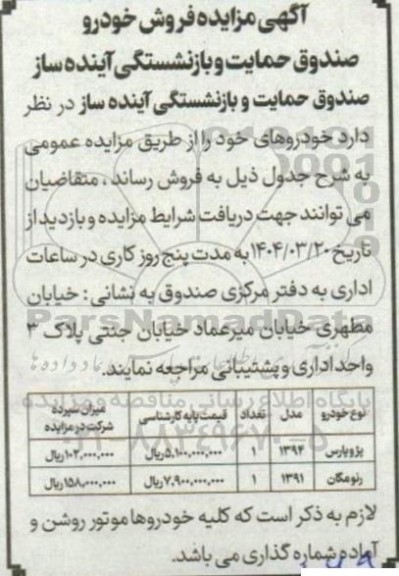 آگهی مزایده فروش خودرو
صندوق حمایت و بازنشستگی آینده ساز
صندوق حمایت و بازنشستگی آینده ساز در نظر
دارد خودروهای خود را از طریق مزایده عمومی
به شرح جدول ذیل به فروش رساند، متقاضیان
می توانند جهت دریافت شرایط مزایده و بازدید از
تاریخ ۱۴۰۴/۰۳/۲۰ به مدت پنج روز کاری در ساعات
اداری به دفتر مرکزی صندوق به نشانی: خیابان
مطهری خیابان میرعماد خیابان جنتی پلاک ۳
واحد اداری و پشتیبانی مراجعه نمایند.
نوع خودرو مدل تعداد قیمت پایه کارشناسی میزان سپرده شرکت در مزایده
پژو پارس ۱۳۹۴ ۱ ۵,۱۰۰,۰۰۰,۰۰۰ریال ۱۰۲,۰۰۰,۰۰۰ریال
رنو مگان ۱۳۹۱ ۱ ۷,۹۰۰,۰۰۰,۰۰۰ریال ۱۵۸,۰۰۰,۰۰۰ریال
لازم به ذکر است که کلیه خودروها موتور روشن و
آماده شماره گذاری می باشد.
ParsNamadData
پایگاه اطلاع رسانی مناقصه و مزایده
۰۲۱-۸۸۳۴۹۶۷۰-۵